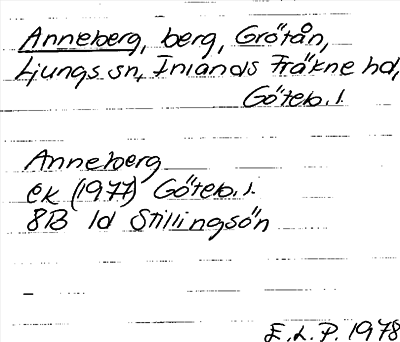 Anneberg, berg, Grötån,
Ljungs sn, Inlands Fräkne hd,
Göteb. l.
Anneberg
ek (1977) Göteb. l.
8B 1d Stillingsön
E.L.P. 1978